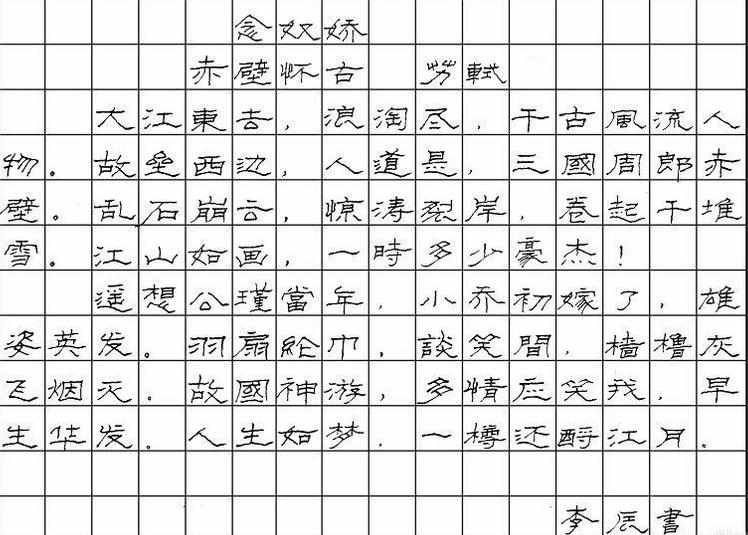 念奴娇
赤壁怀古 苏軾
大江東去，浪淘尽，千古風流人
物。故垒西边，人道是，三國周郎赤
壁。乱石崩云，惊涛裂岸，卷起千堆
雪。江山如画，一時多少豪杰！
遥想公瑾當年，小乔初嫁了，雄
姿英发。羽扇綸巾，談笑間，檣櫓灰
飞烟灭。故國神游，多情应笑我，早
生华发。人生如梦，一樽还酹江月。
李辰書